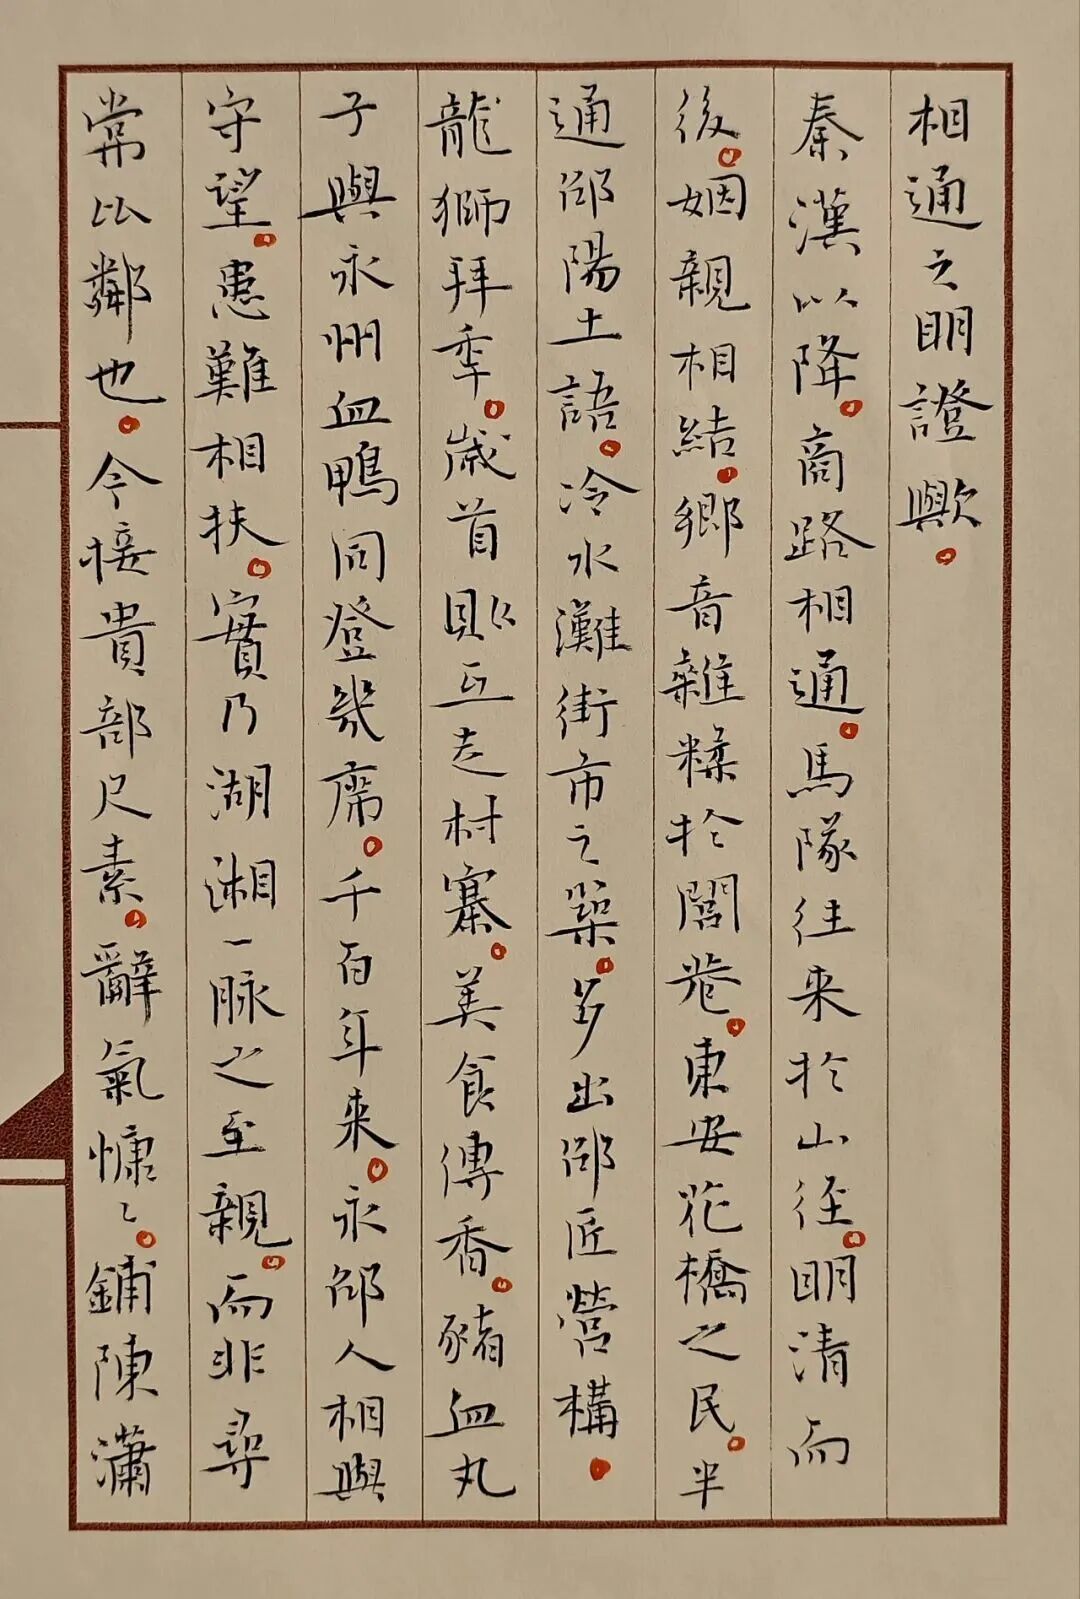 相通之明證歟。
秦漢以降。商路相通。馬隊往来於山径。明清而
後。姻親相結。鄉音雜糅於閭巷。東安花橋之民。半
通邵陽土語。冷水灘街市之築。多出邵匠營構。
龍獅拜年。歲首貼丘走村寨。美食傳香。豬血丸
子與永州血鴨同登幾席。千百年来。永邵人相與
守望。患難相扶。實乃湖湘一脉之至親。而非尋
常比鄰也。今接貴部尺素。辭氣慷々。鋪陳瀟